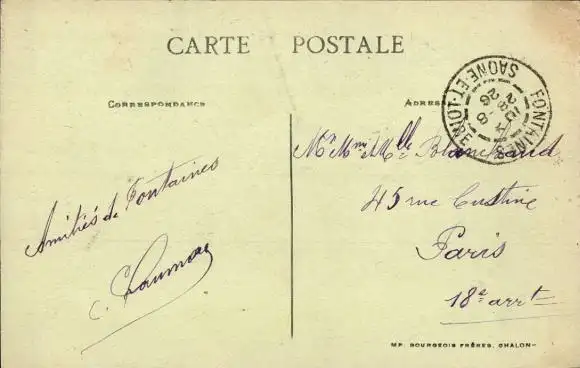 CARTE POSTALE
CORRESPONDANCE
ADRES
FONTAINES
SAONE-ET-LOIRE
Amitiés de Fontaines
C.
Mr Mme et Mlle Blanchard
45 rue Custine
Paris
18e arrt
MP. BOURGEOIS FRÈRES, CHALON-